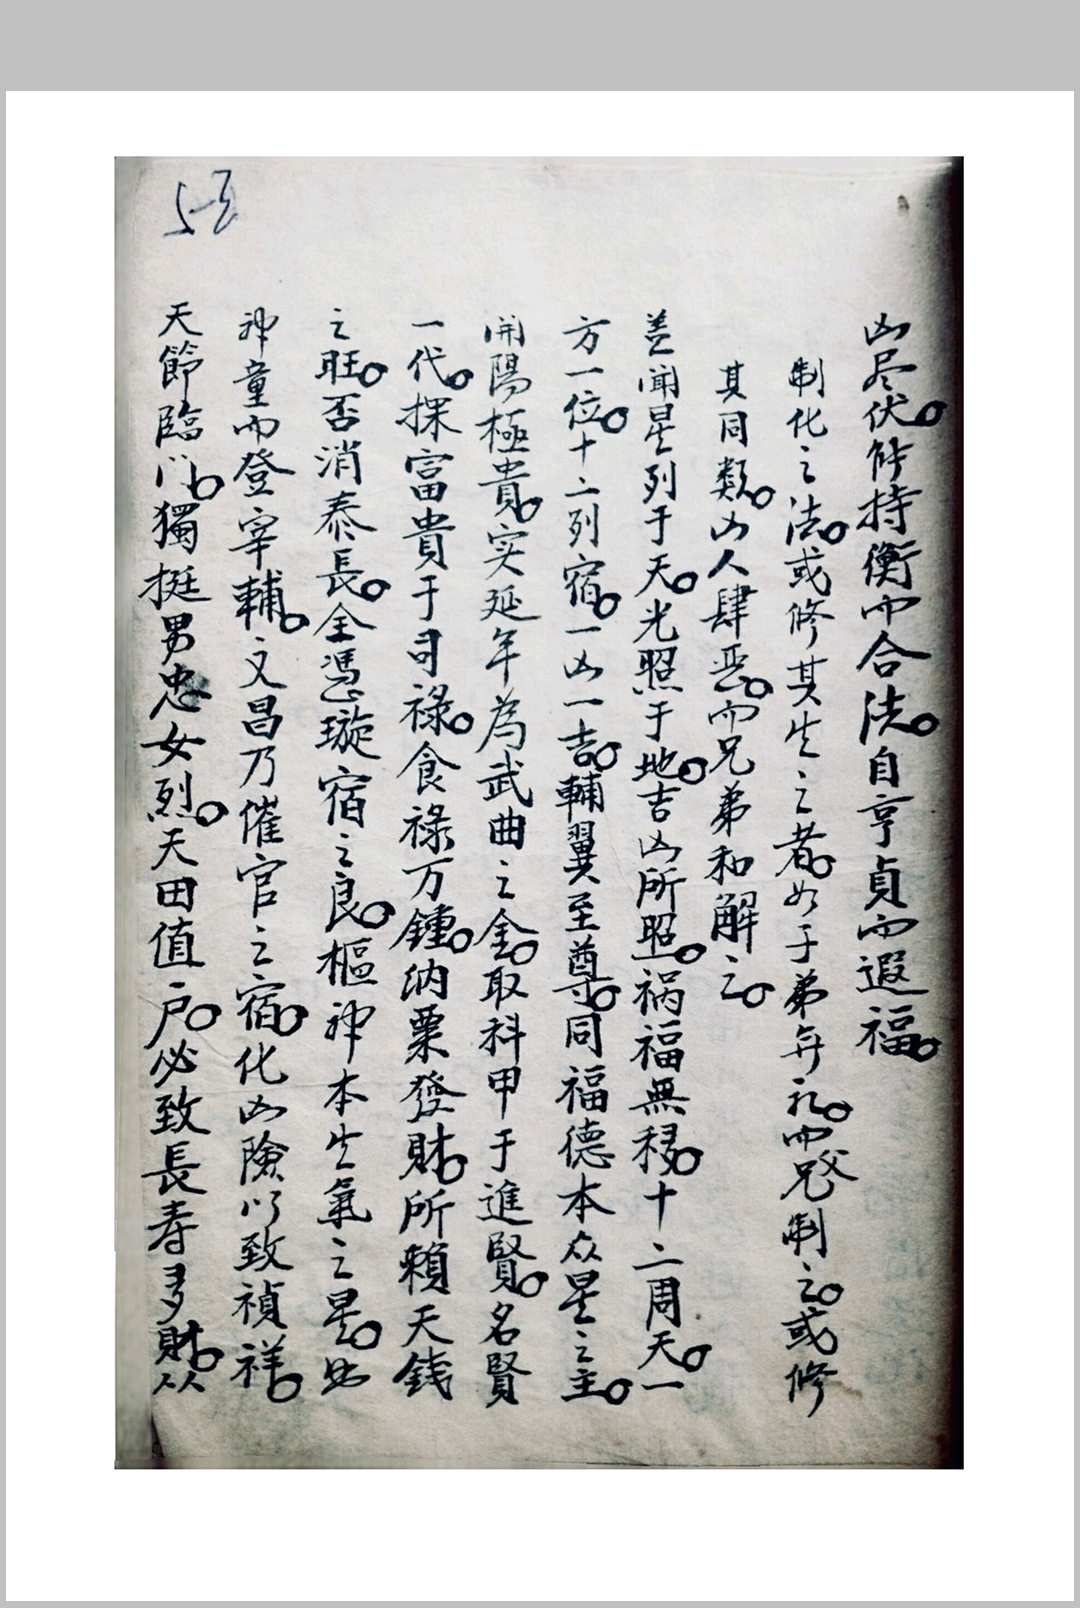 凶尽伏。能持衡而合法。自亨貞而遐福。
制化之法。或修其生之者。如子弟弃礼。而父兄制之。或修
其同類。凶人肆恶。而兄弟和解之。
盖聞星列于天。光照于地。吉凶所照。祸福無移。十二周天。一
方一位。十二列宿。一凶一吉。輔翼至尊。同福德本众星之主。
開陽極貴。实延年為武曲之金。取科甲于進賢。名賢
一代。探富貴于司禄。食禄万鍾。納粟發財。所賴天銭
之旺。否消泰長。全憑璇宿之良。樞神本生氣之星。出
神童而登宰輔。文昌乃催官之宿。化凶險以致禎祥。
天節臨门。獨挺男忠女烈。天田值户。必致長寿多財。从